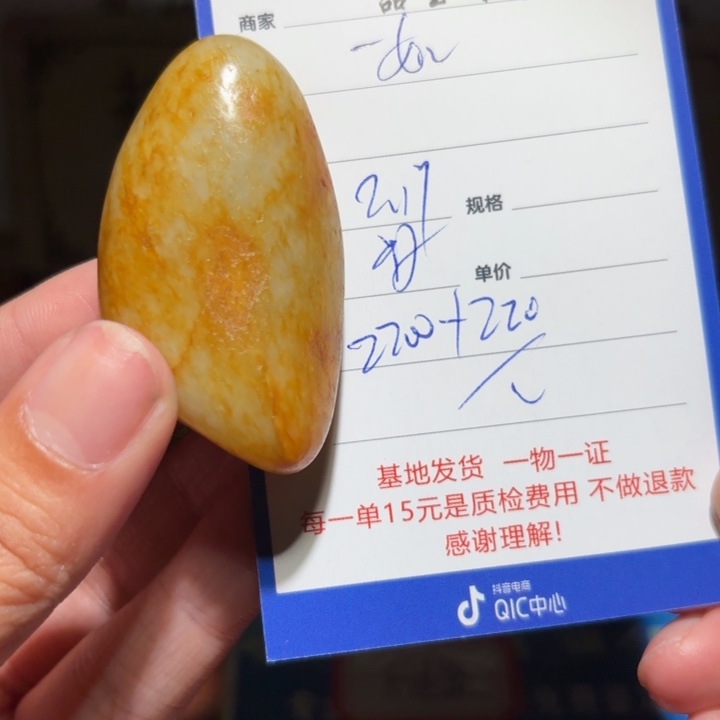 商家
一
规格
单价
2200+220
基地发货 一物一证
每一单15元是质检费用 不做退款
感谢理解!
抖音电商
QIC中心